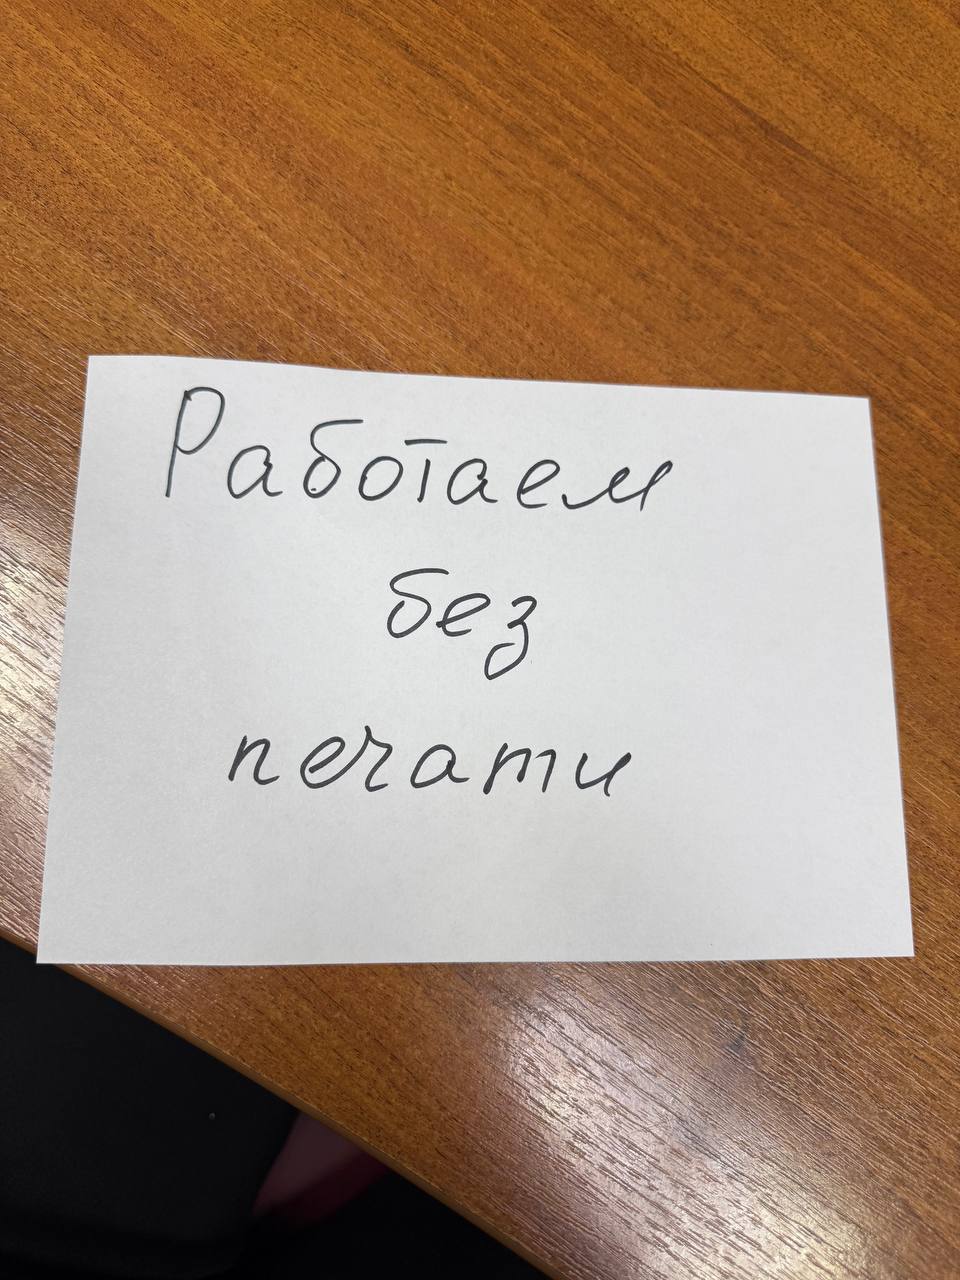 Работаем
без
печати